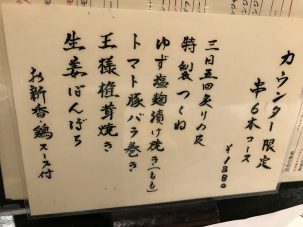 カウンター限定
串6本コース
¥1380
三日五四炙りの皮
特製つくね
ゆず塩麹漬け焼き(もも)
トマト豚バラ巻き
王様椎茸焼き
生姜ぼんぼち
お新香・鶏スープ付